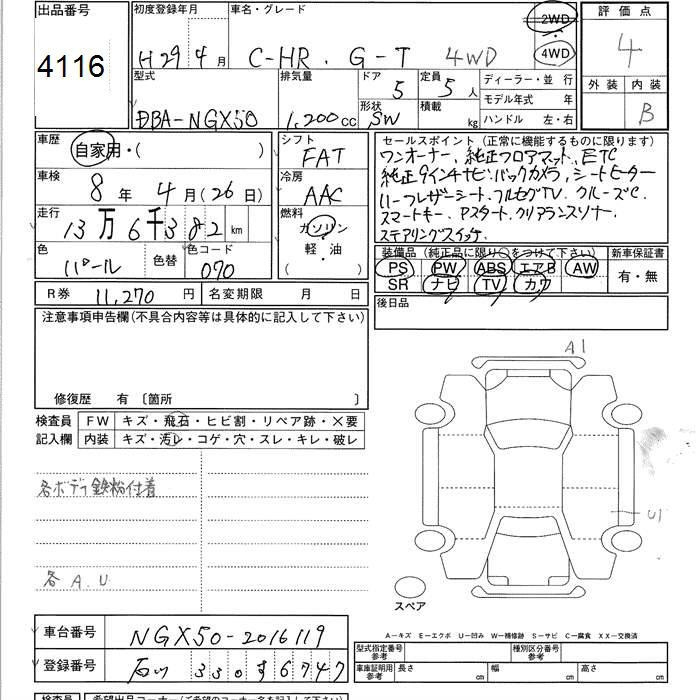 出品番号 初度登録年月 車名・グレード 2WD 評価点
4116 H29年4月 C-HR . G-T 4WD ・ 4WD 4
型式 排気量 ドア 定員 ディーラー・並 行 外装 内装
DBA-NGX50 1,200cc 5 5人 モデル年式 年 B
形状 積載 ハンドル 左・右
SW kg
車歴 自家用・( )
シフト FAT
車検 8年 4月(26日)
冷房 AAC
走行 13万6千382km
燃料 ガソリン 軽・油 ( )
色 パール 色替 色コード 070
R券 11,270円 名変期限 月 日
セールスポイント(正常に機能するものに限ります)
ワンオーナー、純正フロアマット、ETC
純正9インチナビ、バックカメラ、シートヒーター
ハーフレザーシート、フルセグTV、クルーズC、
スマートキー、Pスタート、クリアランスソナー、
ステアリングスイッチ、
装備品(純正品に限り○をつけて下さい) 新車保証書
PS PW ABS エアB AW 有・無
SR ナビ TV カワ
後日品
注意事項申告欄(不具合内容等は具体的に記入して下さい)
修復歴 有 〔箇所 〕
検査員 FW キズ・飛石・ヒビ割・リペア跡・×要
記入欄 内装 キズ・汚レ・コゲ・穴・スレ・キレ・破レ
各ボデー鉄粉付着
各 A.U
A1
U1
スペア
車台番号 NGX50-2016119
登録番号 石川 330 す 6747
A－キズ E－エクボ U－凹み W－補修跡 S－サビ C－腐食 XX－交換済
型式指定番号 参考 種別区分番号 参考
車庫証明用 参考 長さ cm 幅 cm 高さ cm
検査員 希望出品コーナー(ご希望のコーナー名を記入して下さい)